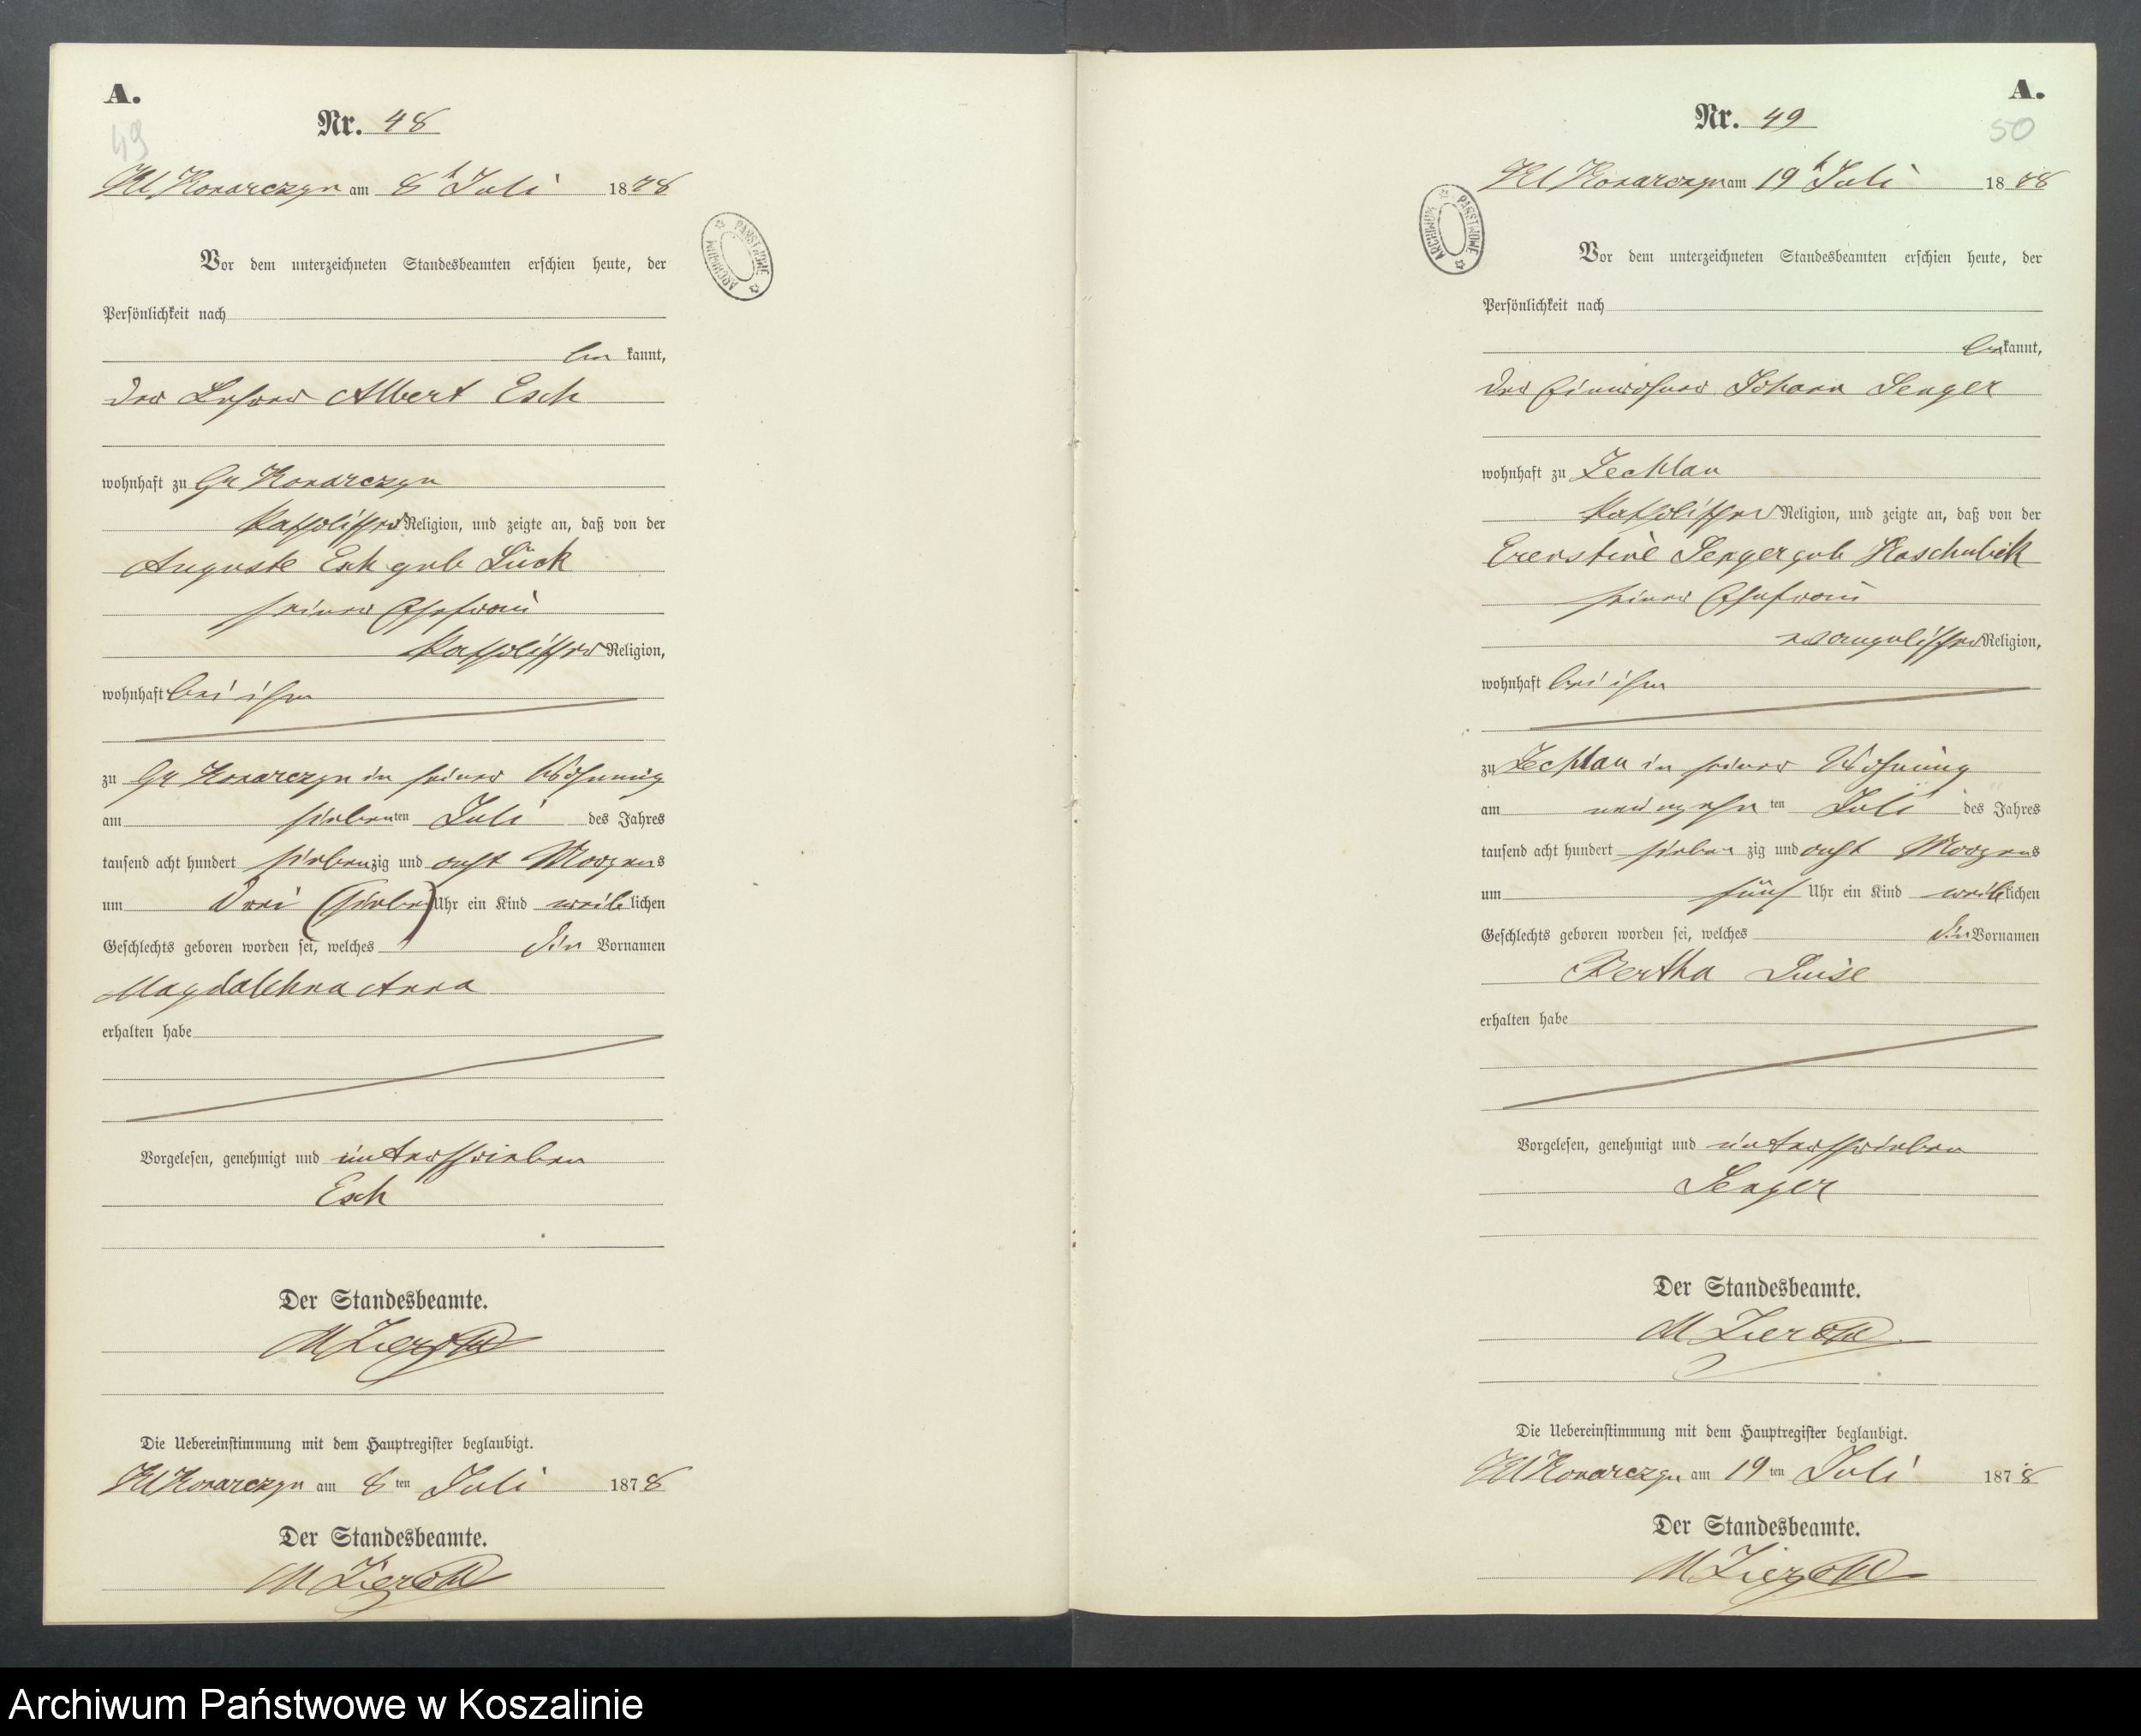 A.
49
Nr. 48
Kl Konarczyn am 8t Juli 1878
ARCHIWUM PAŃSTWOWE
Vor dem unterzeichneten Standesbeamten erschien heute, der
Persönlichkeit nach
be kannt,
der Lehrer Albert Esch
wohnhaft zu Gr Konarczyn
katholischer Religion, und zeigte an, daß von der
Auguste Esch geb Lück
seiner Ehefrau
katholischer Religion,
wohnhaft bei ihm
zu Gr Konarczyn in seiner Wohnung
am siebenten Juli des Jahres
tausend acht hundert siebenzig und acht Morgens
um drei (sieben) Uhr ein Kind weiblichen
Geschlechts geboren worden sei, welches die Vornamen
Magdalehna Anna
erhalten habe
Vorgelesen, genehmigt und unterschrieben
Esch
Der Standesbeamte.
M
Die Uebereinstimmung mit dem Hauptregister beglaubigt.
Kl Konarczyn am 8ten Juli 1878
Der Standesbeamte.
M
A.
50
Nr. 49
Kl Konarczyn am 19t Juli 1878
ARCHIWUM PAŃSTWOWE
Vor dem unterzeichneten Standesbeamten erschien heute, der
Persönlichkeit nach
be kannt,
der Einwohner Johann Senger
wohnhaft zu Zechlau
katholischer Religion, und zeigte an, daß von der
Senger geb Kaschubik
seiner Ehefrau
evangelischer Religion,
wohnhaft bei ihm
zu Zechlau in seiner Wohnung
am neunzehnten Juli des Jahres
tausend acht hundert siebenzig und acht Morgens
um fünf Uhr ein Kind weiblichen
Geschlechts geboren worden sei, welches die Vornamen
Bertha Luise
erhalten habe
Vorgelesen, genehmigt und unterschrieben
Senger
Der Standesbeamte.
M
Die Uebereinstimmung mit dem Hauptregister beglaubigt.
Kl Konarczyn am 19ten Juli 1878
Der Standesbeamte.
M
Archiwum Państwowe w Koszalinie